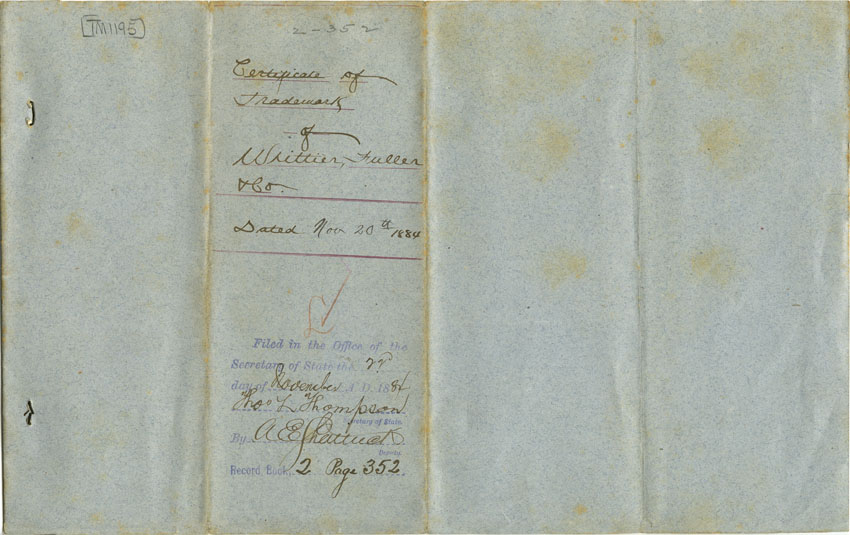 [TM1195]
2-352
Certificate of
Trademark
of
Whittier, Fuller
& Co.
Dated Nov 20th 1884
Filed in the Office of the
Secretary of State the 22d
day of November A. D. 1884
Thos L Thompson
Secretary of State.
By A. E. Shattuck
Deputy.
Record Book 2 Page 352.